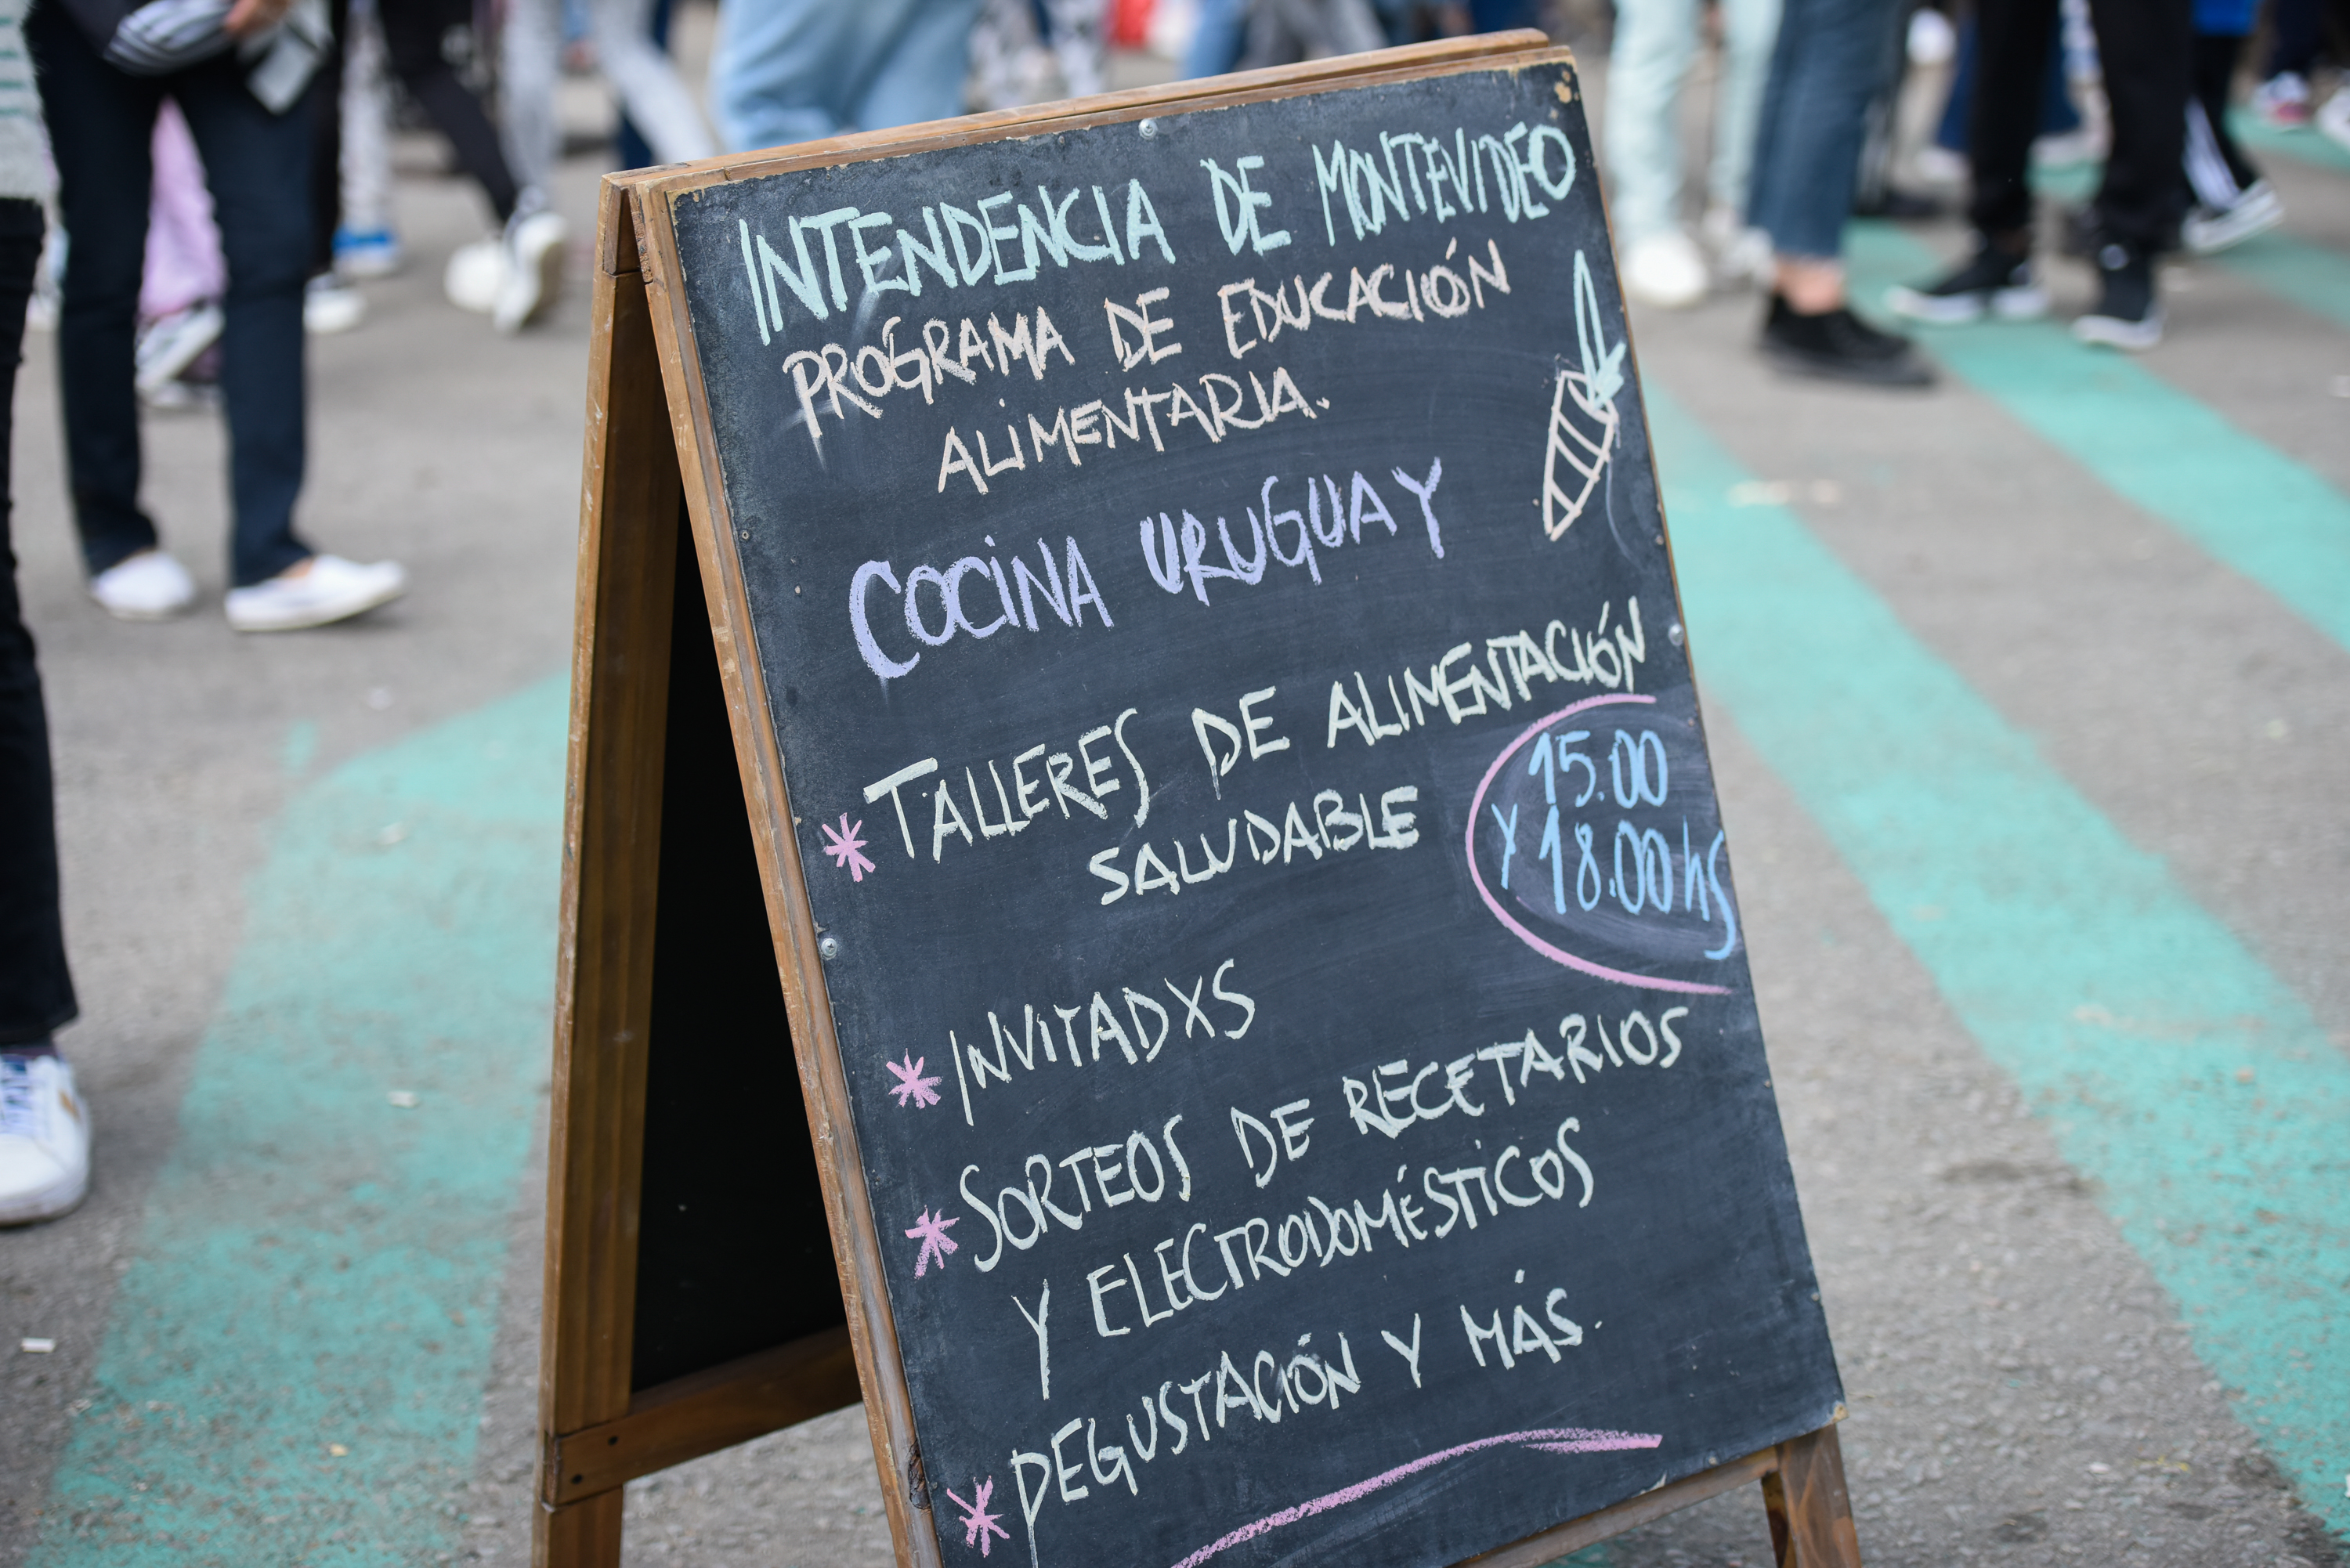 INTENDENCIA DE MONTEVIDEO
PROGRAMA DE EDUCACIÓN
ALIMENTARIA.
COCINA URUGUAY
* TALLERES DE ALIMENTACIÓN
SALUDABLE
15.00
Y 18.00 hs
* INVITADXS
* SORTEOS DE RECETARIOS
Y ELECTRODOMÉSTICOS
* DEGUSTACIÓN Y MÁS.